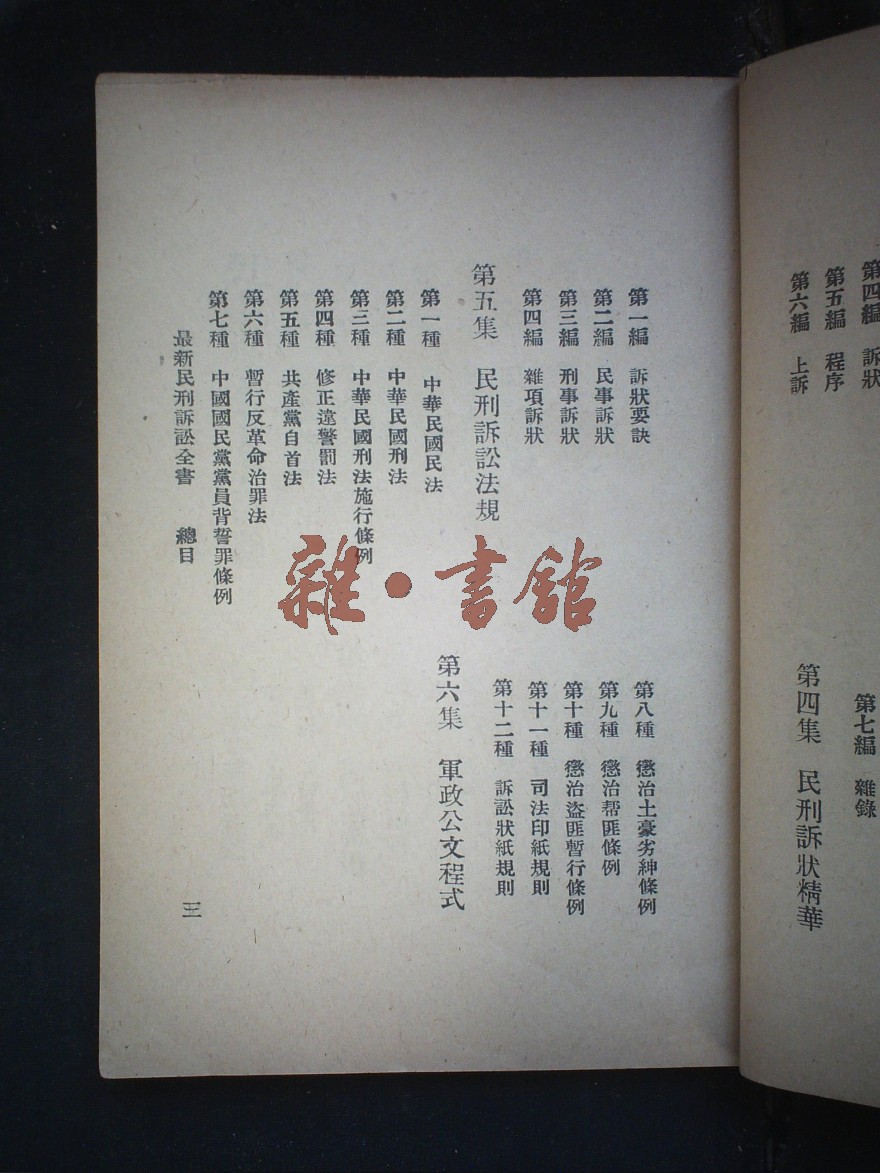 第四編 訴狀
第五編 程序
第六編 上訴
第七編 雜錄
第四集 民刑訴狀精華
第一編 訴狀要訣
第二編 民事訴狀
第三編 刑事訴狀
第四編 雜項訴狀
第五集 民刑訴訟法規
第一種 中華民國民法
第二種 中華民國刑法
第三種 中華民國刑法施行條例
第四種 修正違警罰法
第五種 共產黨自首法
第六種 暫行反革命治罪法
第七種 中國國民黨黨員背誓罪條例
第八種 懲治土豪劣紳條例
第九種 懲治帮匪條例
第十種 懲治盜匪暫行條例
第十一種 司法印紙規則
第十二種 訴訟狀紙規則
第六集 軍政公文程式
最新民刑訴訟全書 總目
三
雜·書館